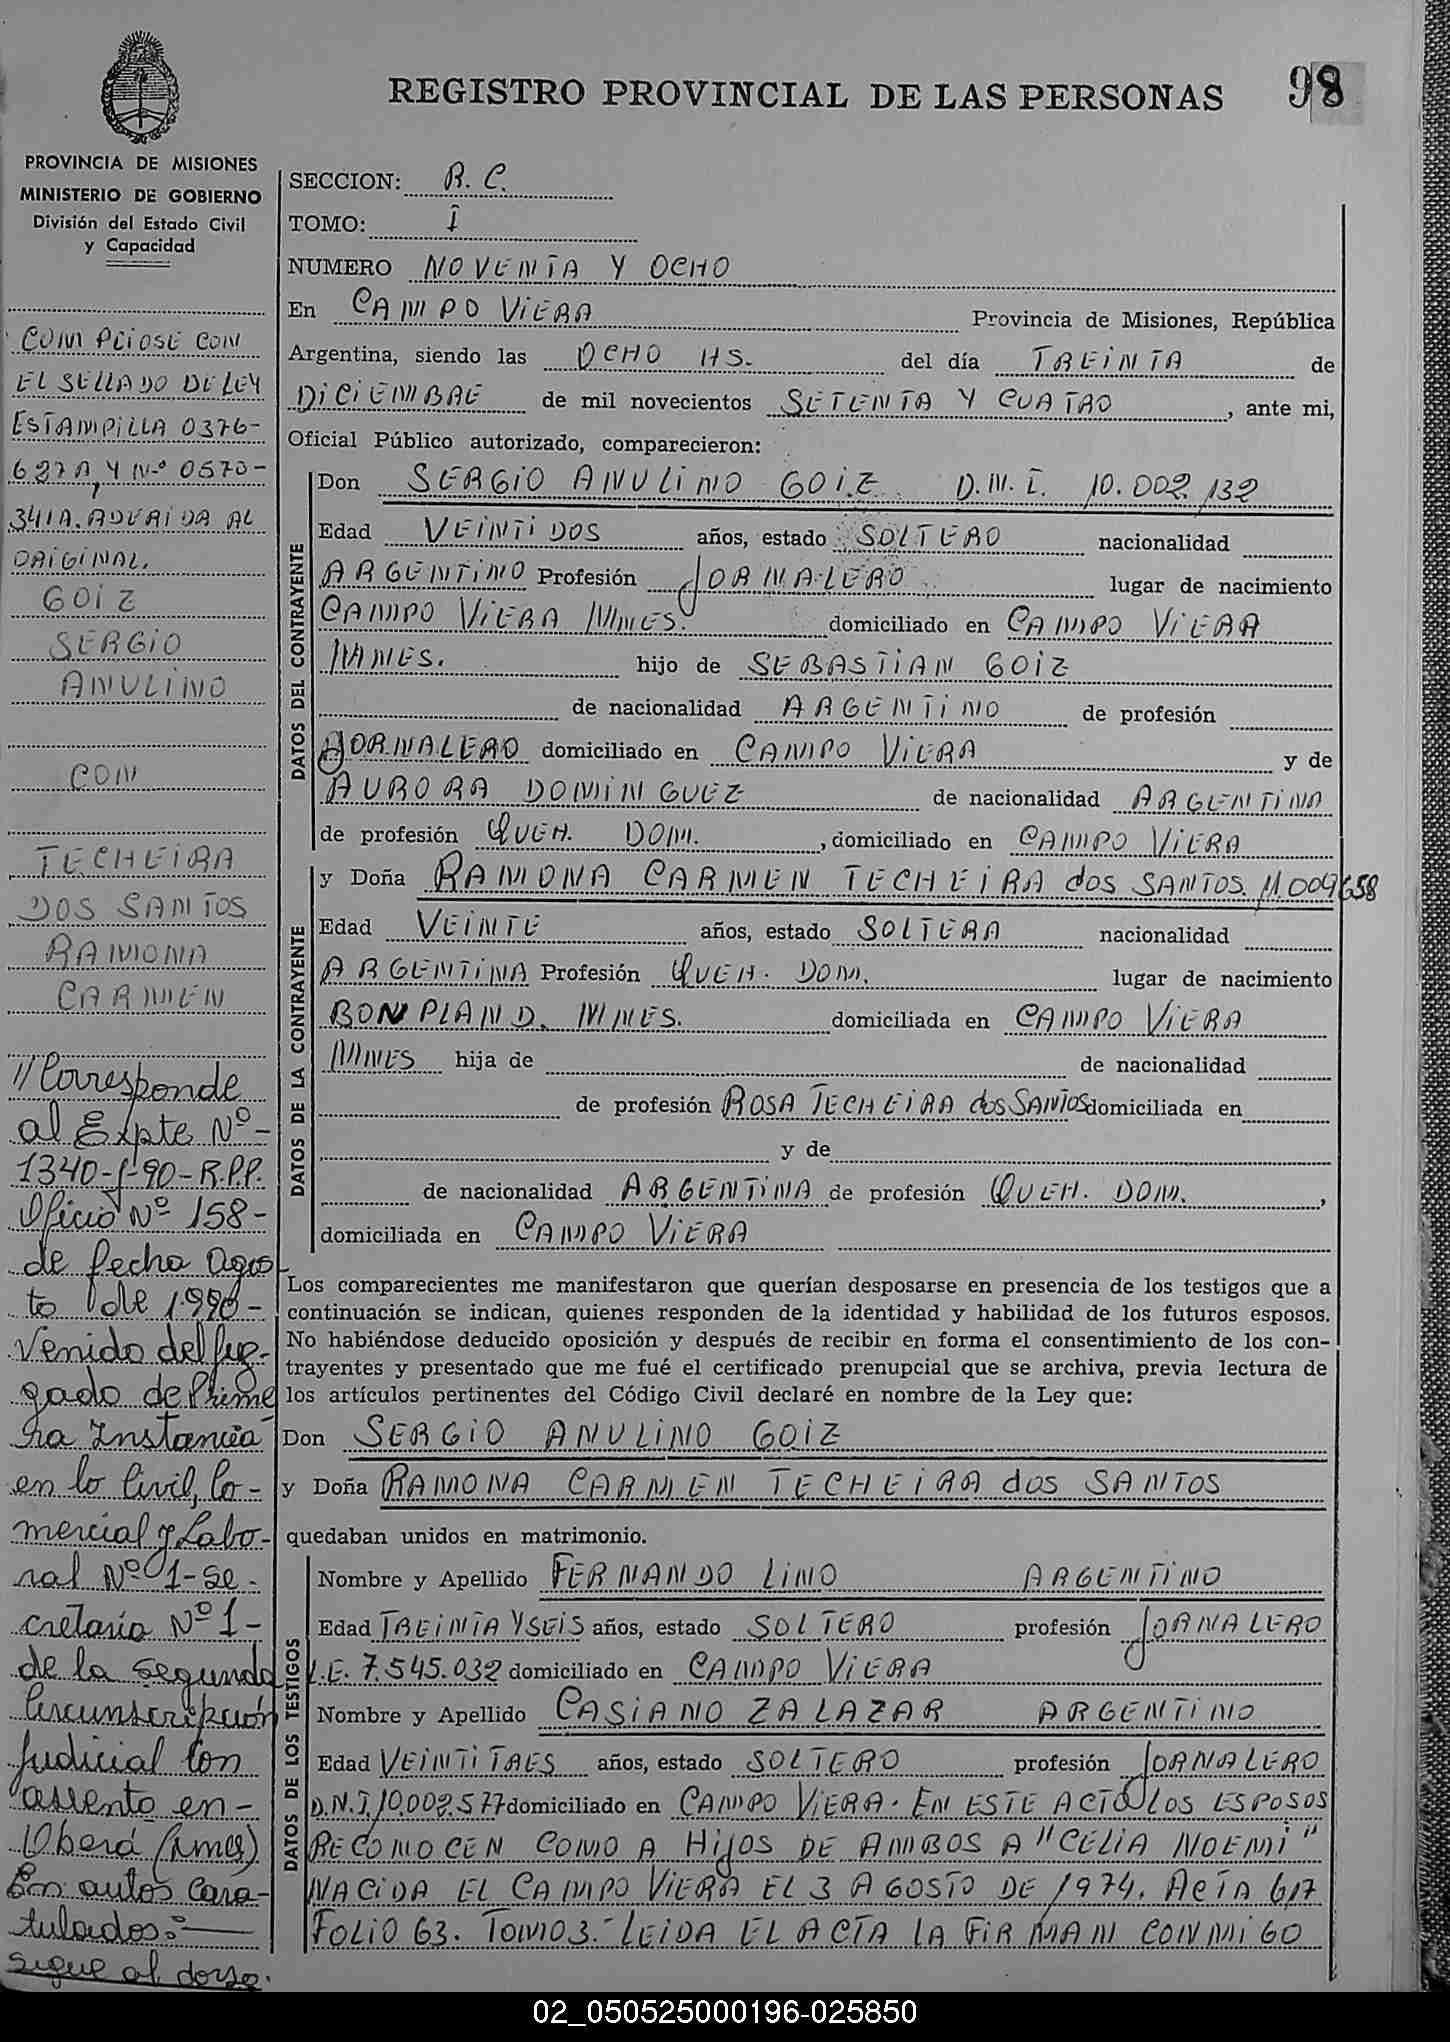 REGISTRO PROVINCIAL DE LAS PERSONAS
98
PROVINCIA DE MISIONES
MINISTERIO DE GOBIERNO
División del Estado Civil
y Capacidad
COMPLIOSE CON
EL SELLADO DE LEY
ESTAMPILLA 0376-
627A, Y Nº 0570-
341A. ADERIDA AL
ORIGINAL.
GOIZ
SERGIO
ANULINO
CON
TECHEIRA
DOS SANTOS
RAMONA
CARMEN
//Corresponde
al Expte Nº-
1340-J-90-R.P.P.
Oficio Nº 158-
de fecha Agos
to de 1.990-
Venido del Juz-
gado de Prime
ra Instancia
en lo Civil, Co-
mercial y Labo-
ral Nº 1-Se-
cretaría Nº 1-
de la Segunda
Circunscripción
Judicial con
asiento en-
Oberá (Mnes)
En autos Cara-
tulados:-
sigue al dorso.
SECCION: R. C.
TOMO: I
NUMERO NOVENTA Y OCHO
En CAMPO VIERA Provincia de Misiones, República
Argentina, siendo las OCHO HS. del día TREINTA de
DICIEMBRE de mil novecientos SETENTA Y CUATRO, ante mi,
Oficial Público autorizado, comparecieron:
DATOS DEL CONTRAYENTE
Don SERGIO ANULINO GOIZ. D.N.I. 10.002.132
Edad VEINTIDOS años, estado SOLTERO nacionalidad
ARGENTINO Profesión JORNALERO lugar de nacimiento
CAMPO VIERA MNES. domiciliado en CAMPO VIERA
MNES. hijo de SEBASTIAN GOIZ
de nacionalidad ARGENTINO de profesión
JORNALERO domiciliado en CAMPO VIERA y de
AURORA DOMINGUEZ de nacionalidad ARGENTINA
de profesión QUEH. DOM., domiciliado en CAMPO VIERA
DATOS DE LA CONTRAYENTE
y Doña RAMONA CARMEN TECHEIRA dos SANTOS. 11.009658
Edad VEINTE años, estado SOLTERA nacionalidad
ARGENTINA Profesión QUEH. DOM. lugar de nacimiento
BONPLAND. MNES. domiciliada en CAMPO VIERA
MNES hija de de nacionalidad
de profesión ROSA TECHEIRA dos SANTOS domiciliada en
y de
de nacionalidad ARGENTINA de profesión QUEH. DOM.,
domiciliada en CAMPO VIERA
Los comparecientes me manifestaron que querían desposarse en presencia de los testigos que a
continuación se indican, quienes responden de la identidad y habilidad de los futuros esposos.
No habiéndose deducido oposición y después de recibir en forma el consentimiento de los con-
trayentes y presentado que me fué el certificado prenupcial que se archiva, previa lectura de
los artículos pertinentes del Código Civil declaré en nombre de la Ley que:
Don SERGIO ANULINO GOIZ
y Doña RAMONA CARMEN TECHEIRA dos SANTOS
quedaban unidos en matrimonio.
DATOS DE LOS TESTIGOS
Nombre y Apellido FERNANDO LINO ARGENTINO
Edad TREINTA Y SEIS años, estado SOLTERO profesión JORNALERO
L.E. 7.545.032 domiciliado en CAMPO VIERA
Nombre y Apellido CASIANO ZALAZAR ARGENTINO
Edad VEINTITRES años, estado SOLTERO profesión JORNALERO
D.N.I. 10.002.577 domiciliado en CAMPO VIERA. EN ESTE ACTO LOS ESPOSOS
RECONOCEN COMO A HIJOS DE AMBOS A "CELIA NOEMI"
NACIDA EL CAMPO VIERA EL 3 AGOSTO DE 1974. ACTA 617
FOLIO 63. TOMO 3.- LEIDA EL ACTA LA FIRMAN CONMIGO
02_050525000196-025850